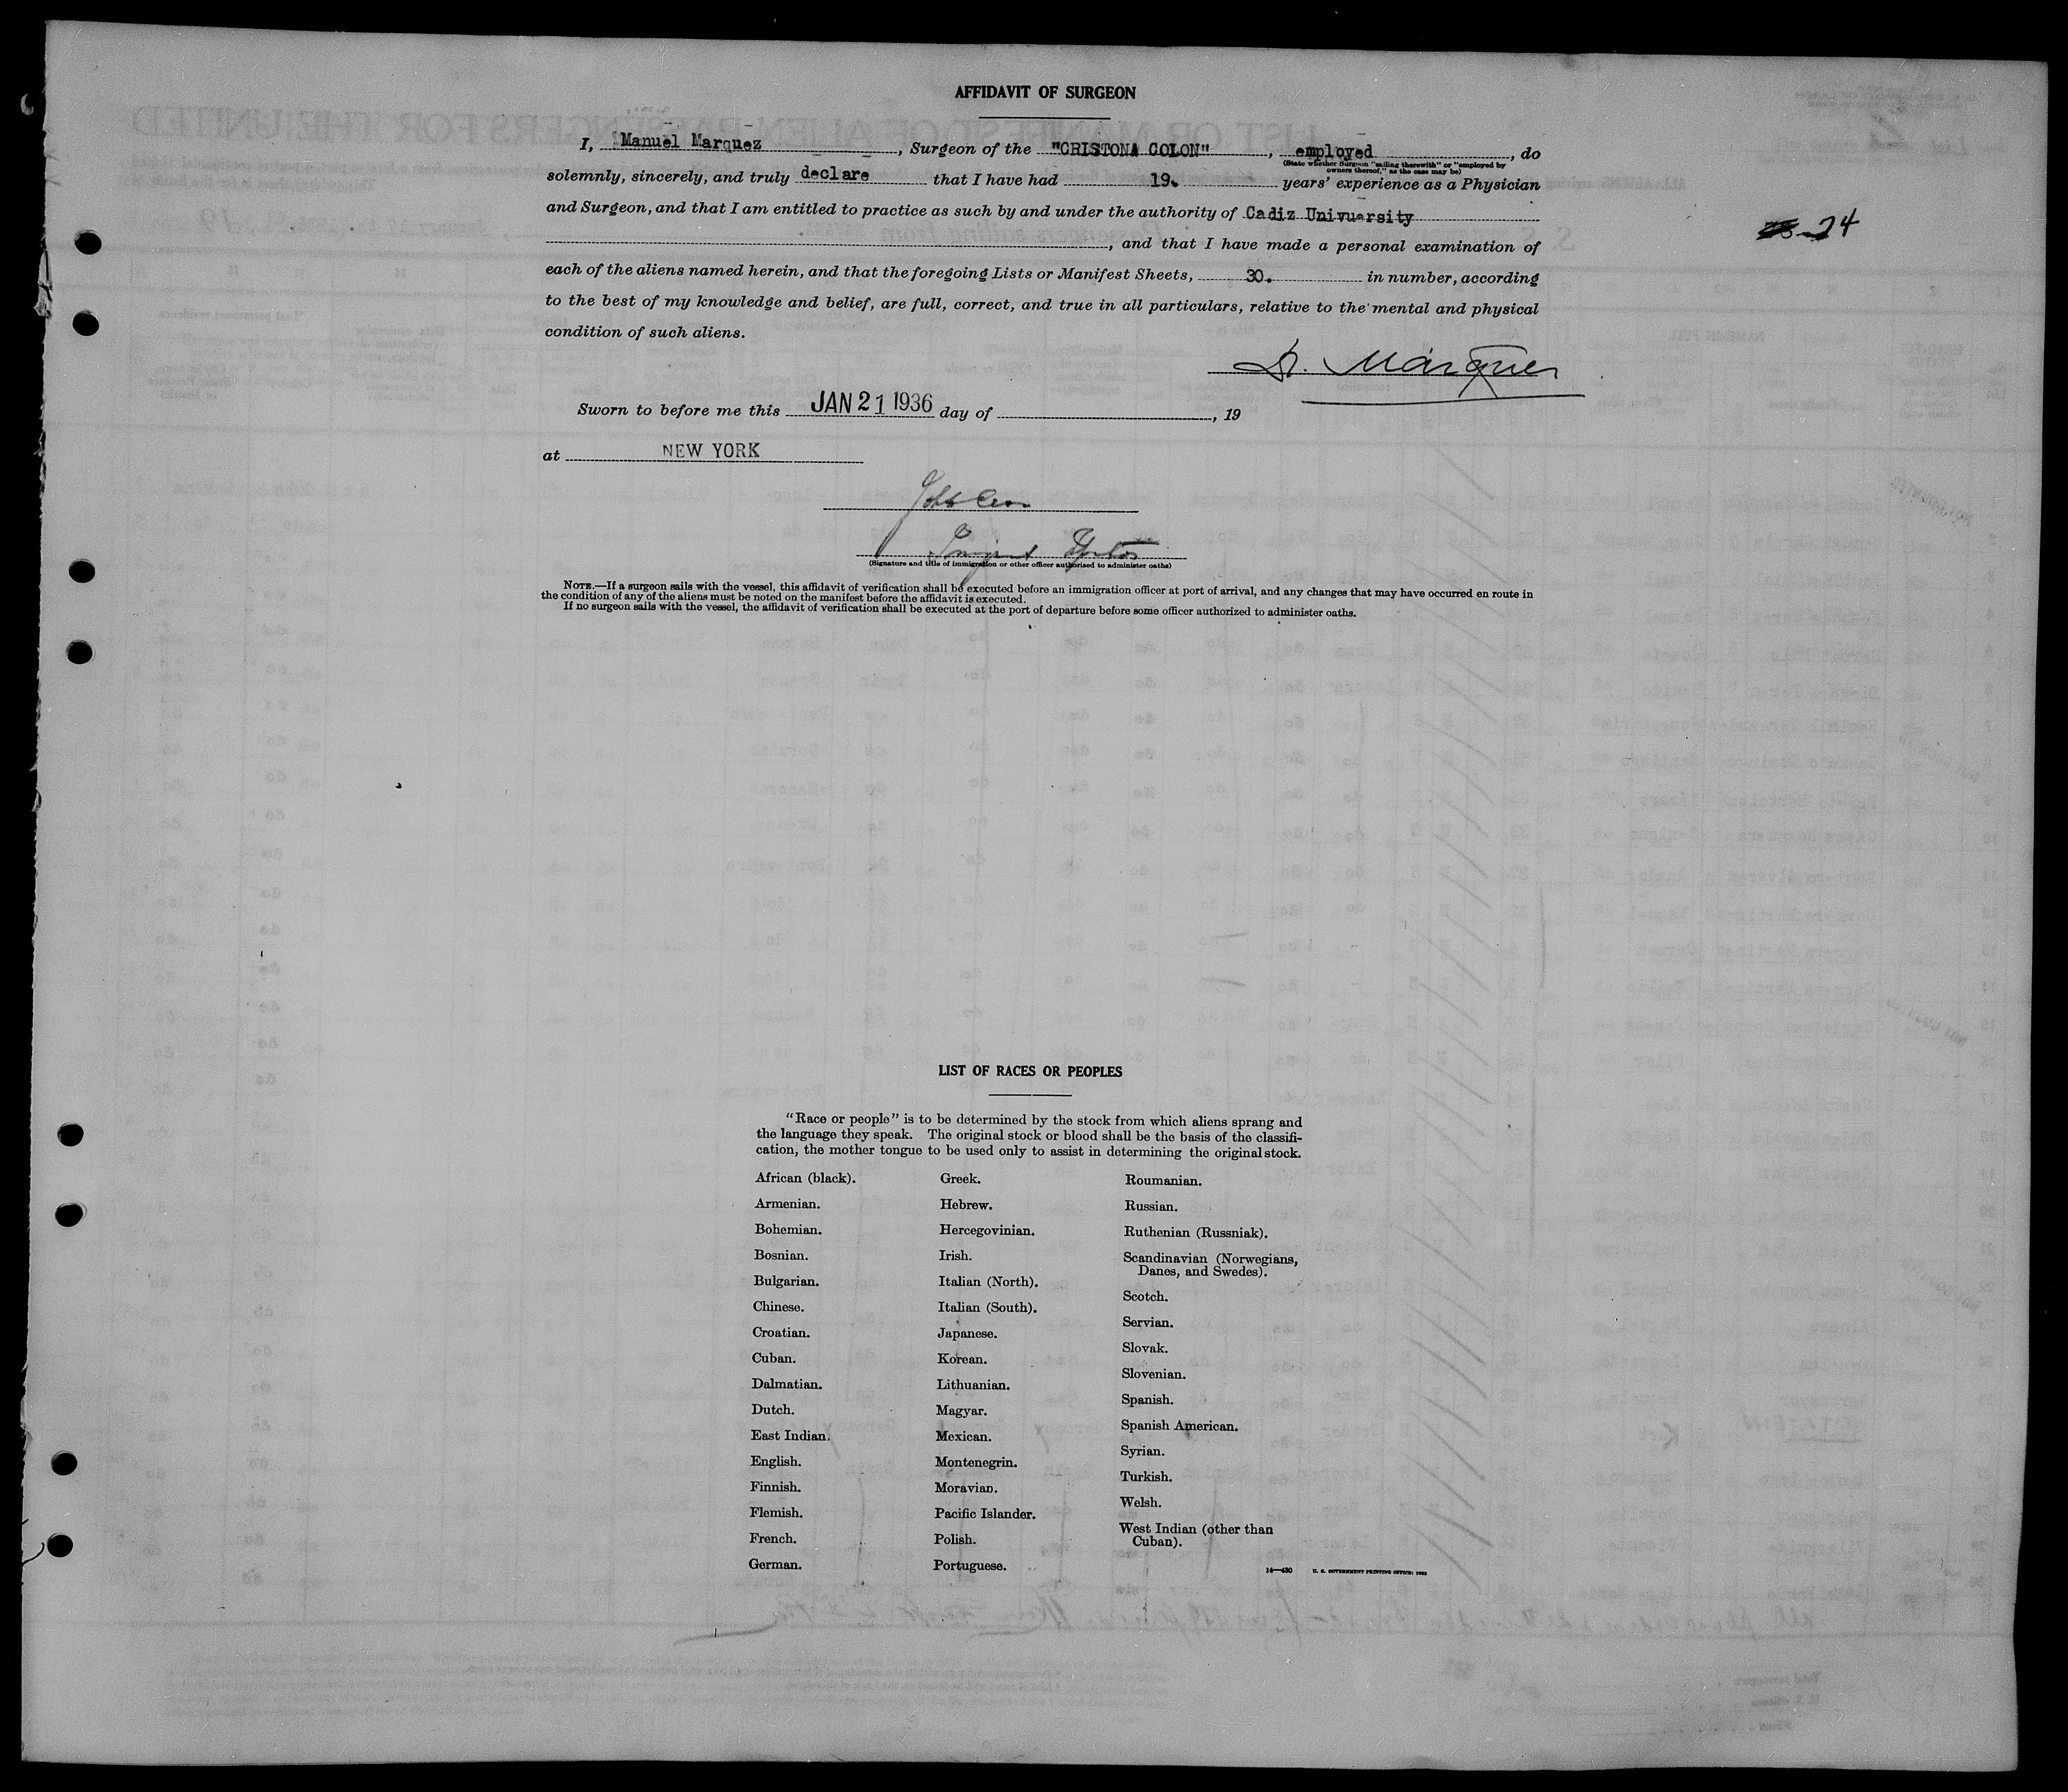 AFFIDAVIT OF SURGEON
I, Manuel Marquez, Surgeon of the "CRISTONA COLON", employed, do
(State whether Surgeon "sailing therewith" or "employed by
owners thereof," as the case may be)
solemnly, sincerely, and truly declare that I have had 19. years' experience as a Physician
and Surgeon, and that I am entitled to practice as such by and under the authority of Cadiz Univuersity
, and that I have made a personal examination of
24
each of the aliens named herein, and that the foregoing Lists or Manifest Sheets, 30. in number, according
to the best of my knowledge and belief, are full, correct, and true in all particulars, relative to the mental and physical
condition of such aliens.
Dr. Márquez
Sworn to before me this JAN 21 1936 day of , 19
at NEW YORK
(Signature and title of immigration or other officer authorized to administer oaths)
NOTE.—If a surgeon sails with the vessel, this affidavit of verification shall be executed before an immigration officer at port of arrival, and any changes that may have occurred en route in
the condition of any of the aliens must be noted on the manifest before the affidavit is executed.
If no surgeon sails with the vessel, the affidavit of verification shall be executed at the port of departure before some officer authorized to administer oaths.
LIST OF RACES OR PEOPLES
"Race or people" is to be determined by the stock from which aliens sprang and
the language they speak. The original stock or blood shall be the basis of the classifi-
cation, the mother tongue to be used only to assist in determining the original stock.
African (black).
Armenian.
Bohemian.
Bosnian.
Bulgarian.
Chinese.
Croatian.
Cuban.
Dalmatian.
Dutch.
East Indian.
English.
Finnish.
Flemish.
French.
German.
Greek.
Hebrew.
Hercegovinian.
Irish.
Italian (North).
Italian (South).
Japanese.
Korean.
Lithuanian.
Magyar.
Mexican.
Montenegrin.
Moravian.
Pacific Islander.
Polish.
Portuguese.
Roumanian.
Russian.
Ruthenian (Russniak).
Scandinavian (Norwegians,
Danes, and Swedes).
Scotch.
Servian.
Slovak.
Slovenian.
Spanish.
Spanish American.
Syrian.
Turkish.
Welsh.
West Indian (other than
Cuban).
14—430 U. S. GOVERNMENT PRINTING OFFICE: